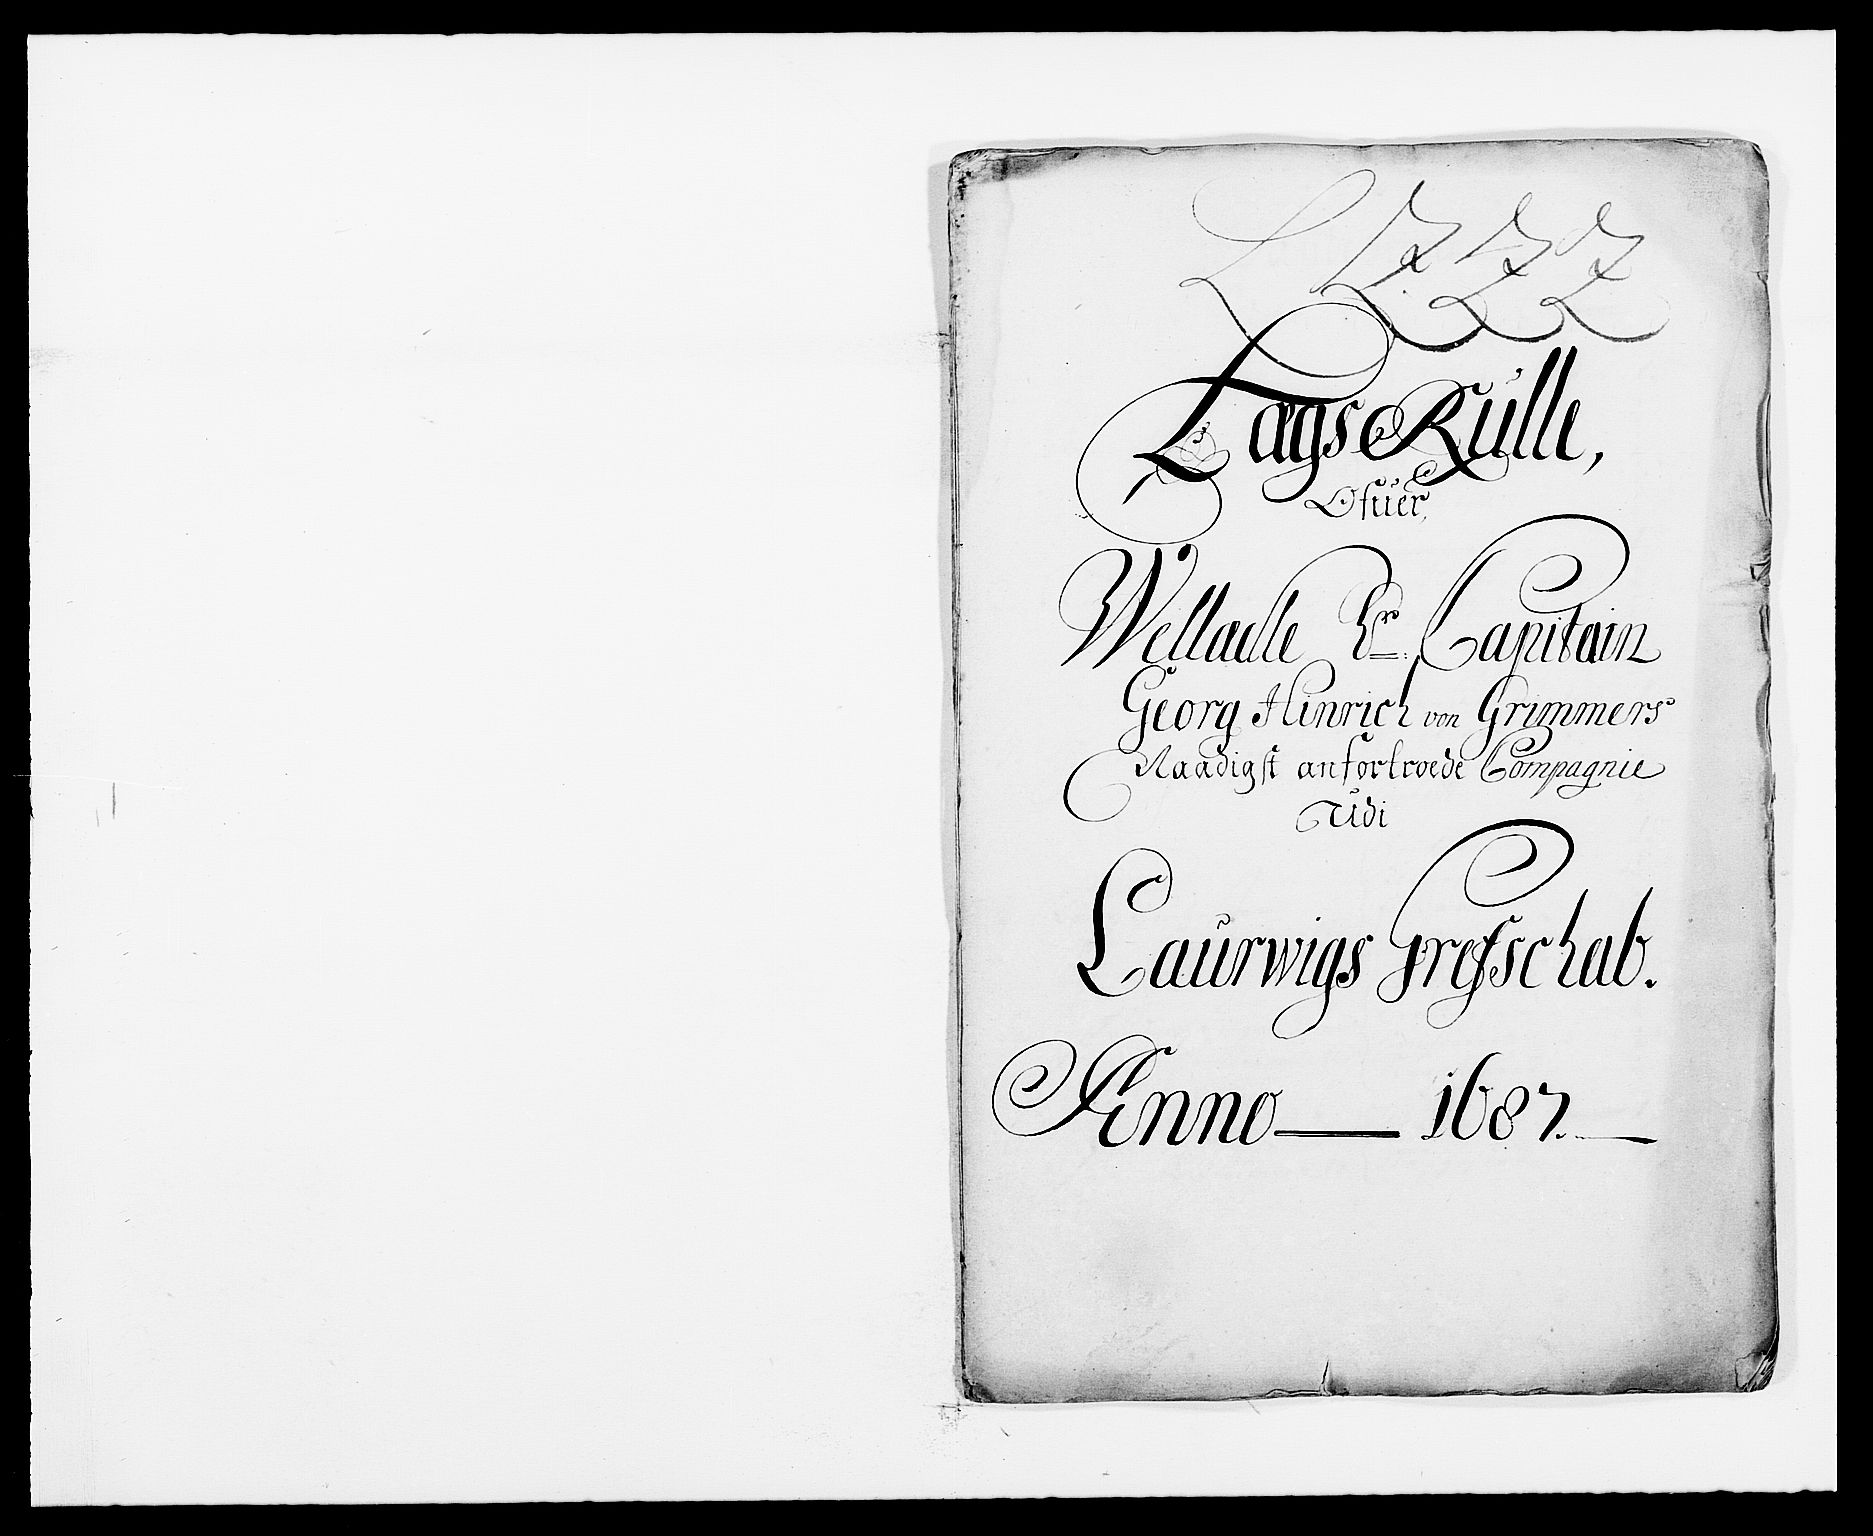 LZZZ
LægseRülle,
Ofüer,
Welladle Hr. Capitain
Georg Hinrich von Grimmers
Naadigst anfortroede Compagnie
Udi
Laürwigs Grefschab.
Anno — 1687. —